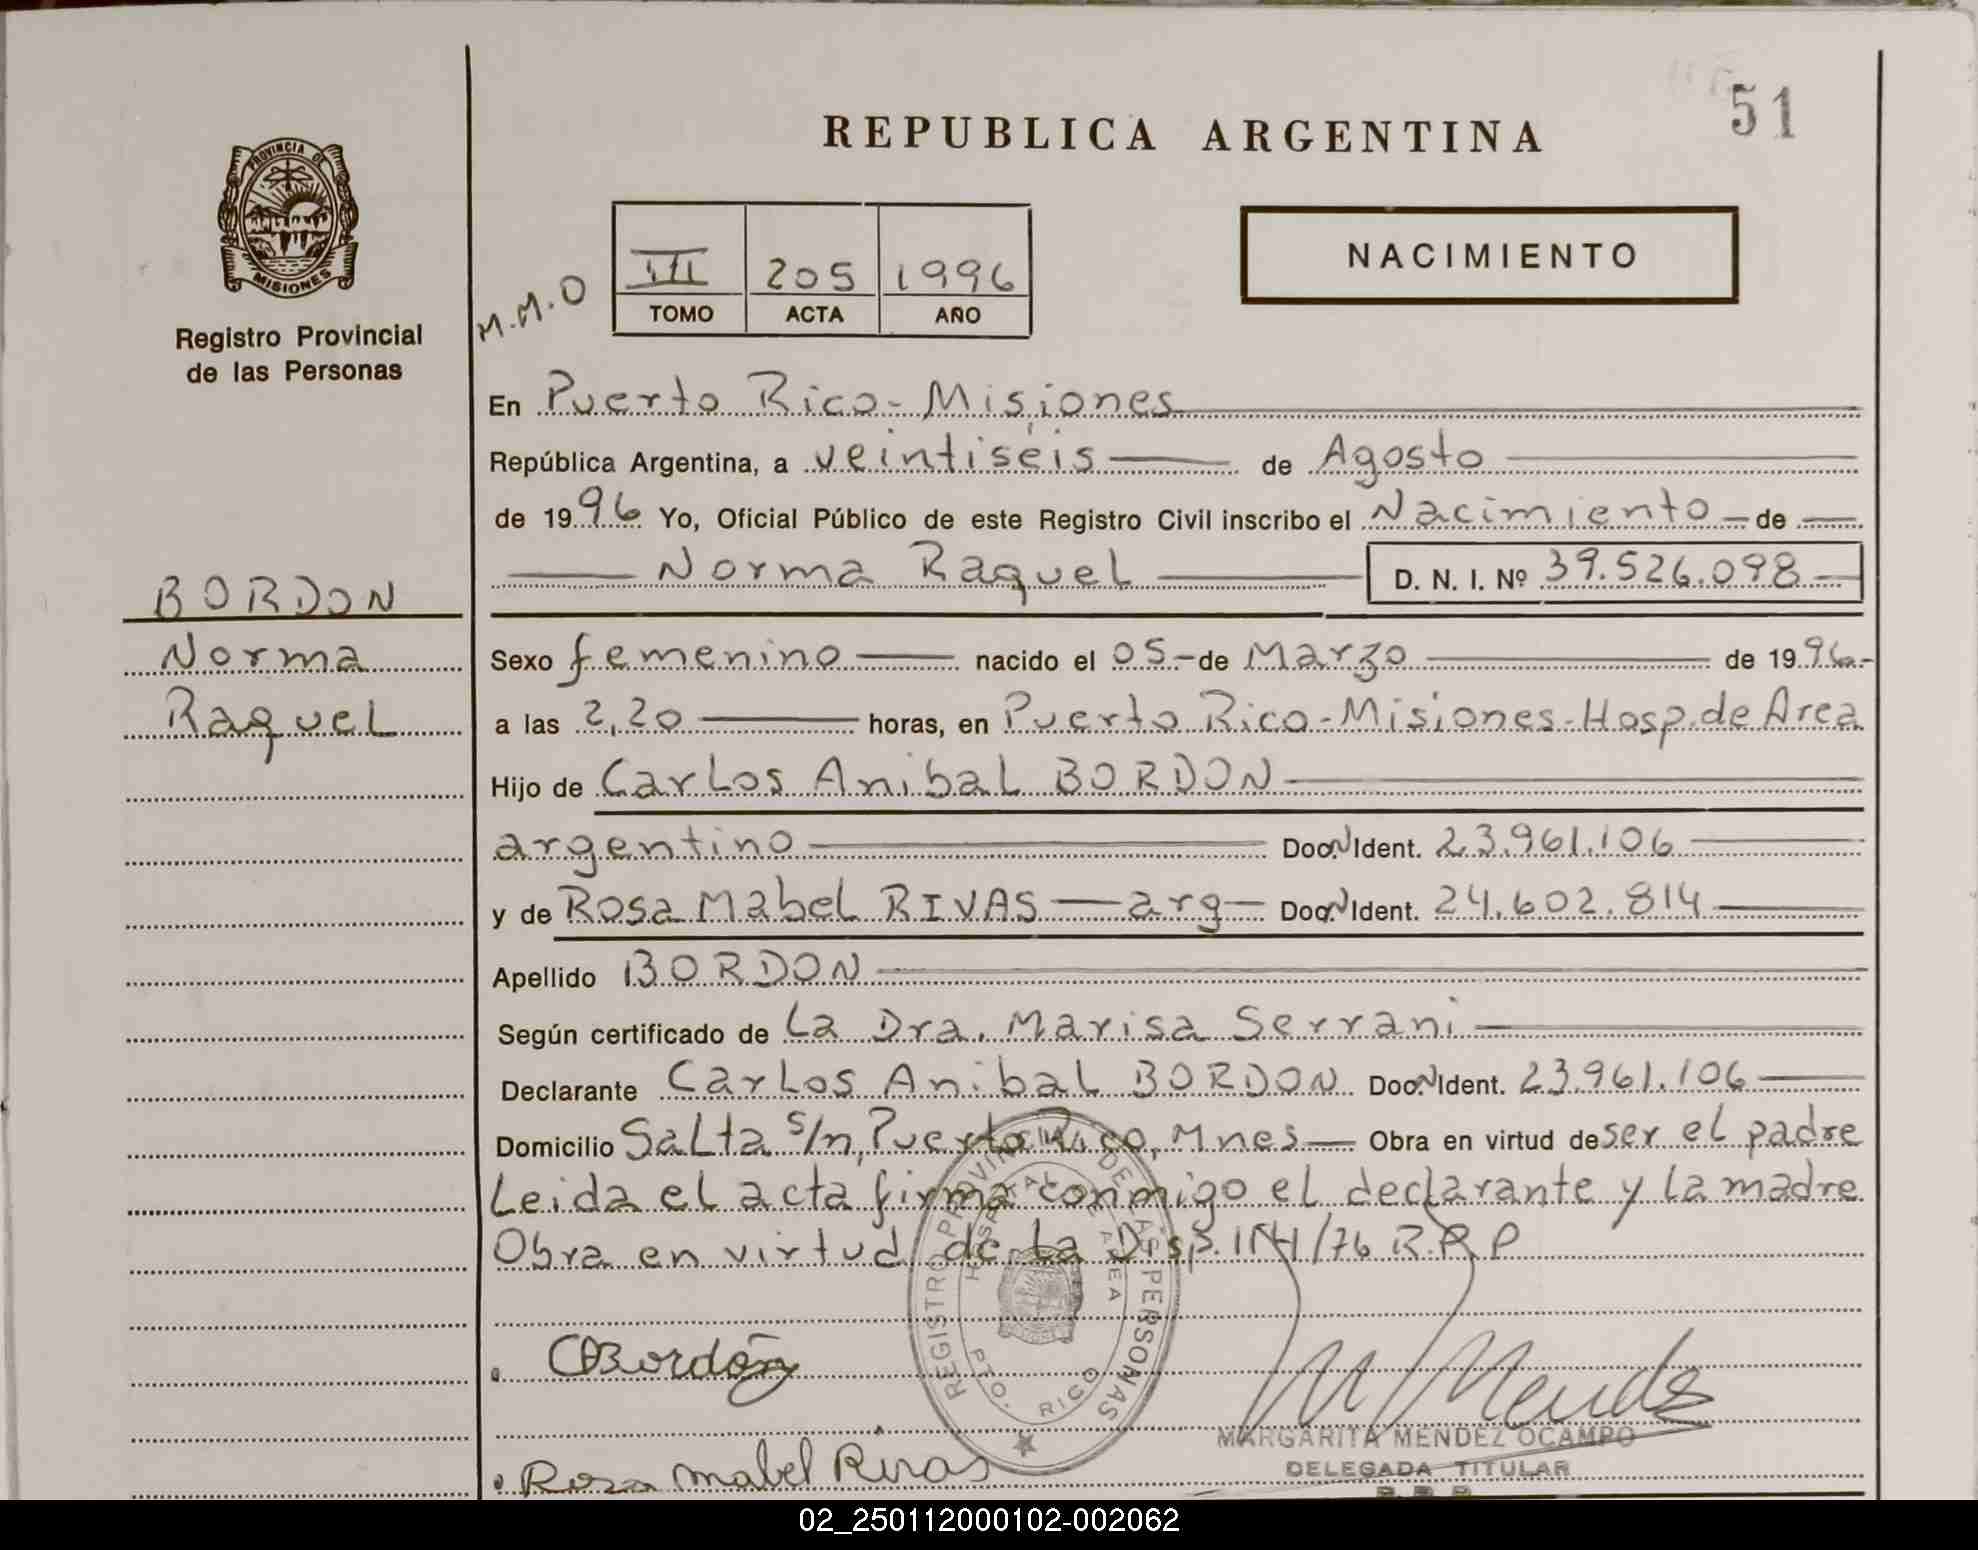 51
REPUBLICA ARGENTINA
PROVINCIA DE
MISIONES
Registro Provincial
de las Personas
M.M.O
III 205 1996
TOMO ACTA AÑO
NACIMIENTO
En Puerto Rico - Misiones
República Argentina, a veintiséis de Agosto
de 1996 Yo, Oficial Público de este Registro Civil inscribo el Nacimiento de
Norma Raquel D. N. I. Nº 39.526.098
BORDON
Norma
Raquel
Sexo femenino nacido el 05 - de Marzo de 1996
a las 2,20 horas, en Puerto Rico - Misiones - Hosp. de Area
Hijo de Carlos Anibal BORDON
argentino Doc. N Ident. 23.961.106
y de Rosa Mabel RIVAS — arg — Doc. N Ident. 24.602.814
Apellido BORDON
Según certificado de La Dra. Marisa Serrani
Declarante Carlos Anibal BORDON Doc. N Ident. 23.961.106
Domicilio Salta s/n, Puerto Rico, Mnes — Obra en virtud de ser el padre
Leida el acta firma conmigo el declarante y la madre
Obra en virtud de la Disp. 141/76 R.R.P
REGISTRO PROVINCIAL DE LAS PERSONAS
HOSPITAL DE AREA
PTO. RICO
CBordón
M Mendez
MARGARITA MENDEZ OCAMPO
DELEGADA TITULAR
Rosa Mabel Rivas
02_250112000102-002062